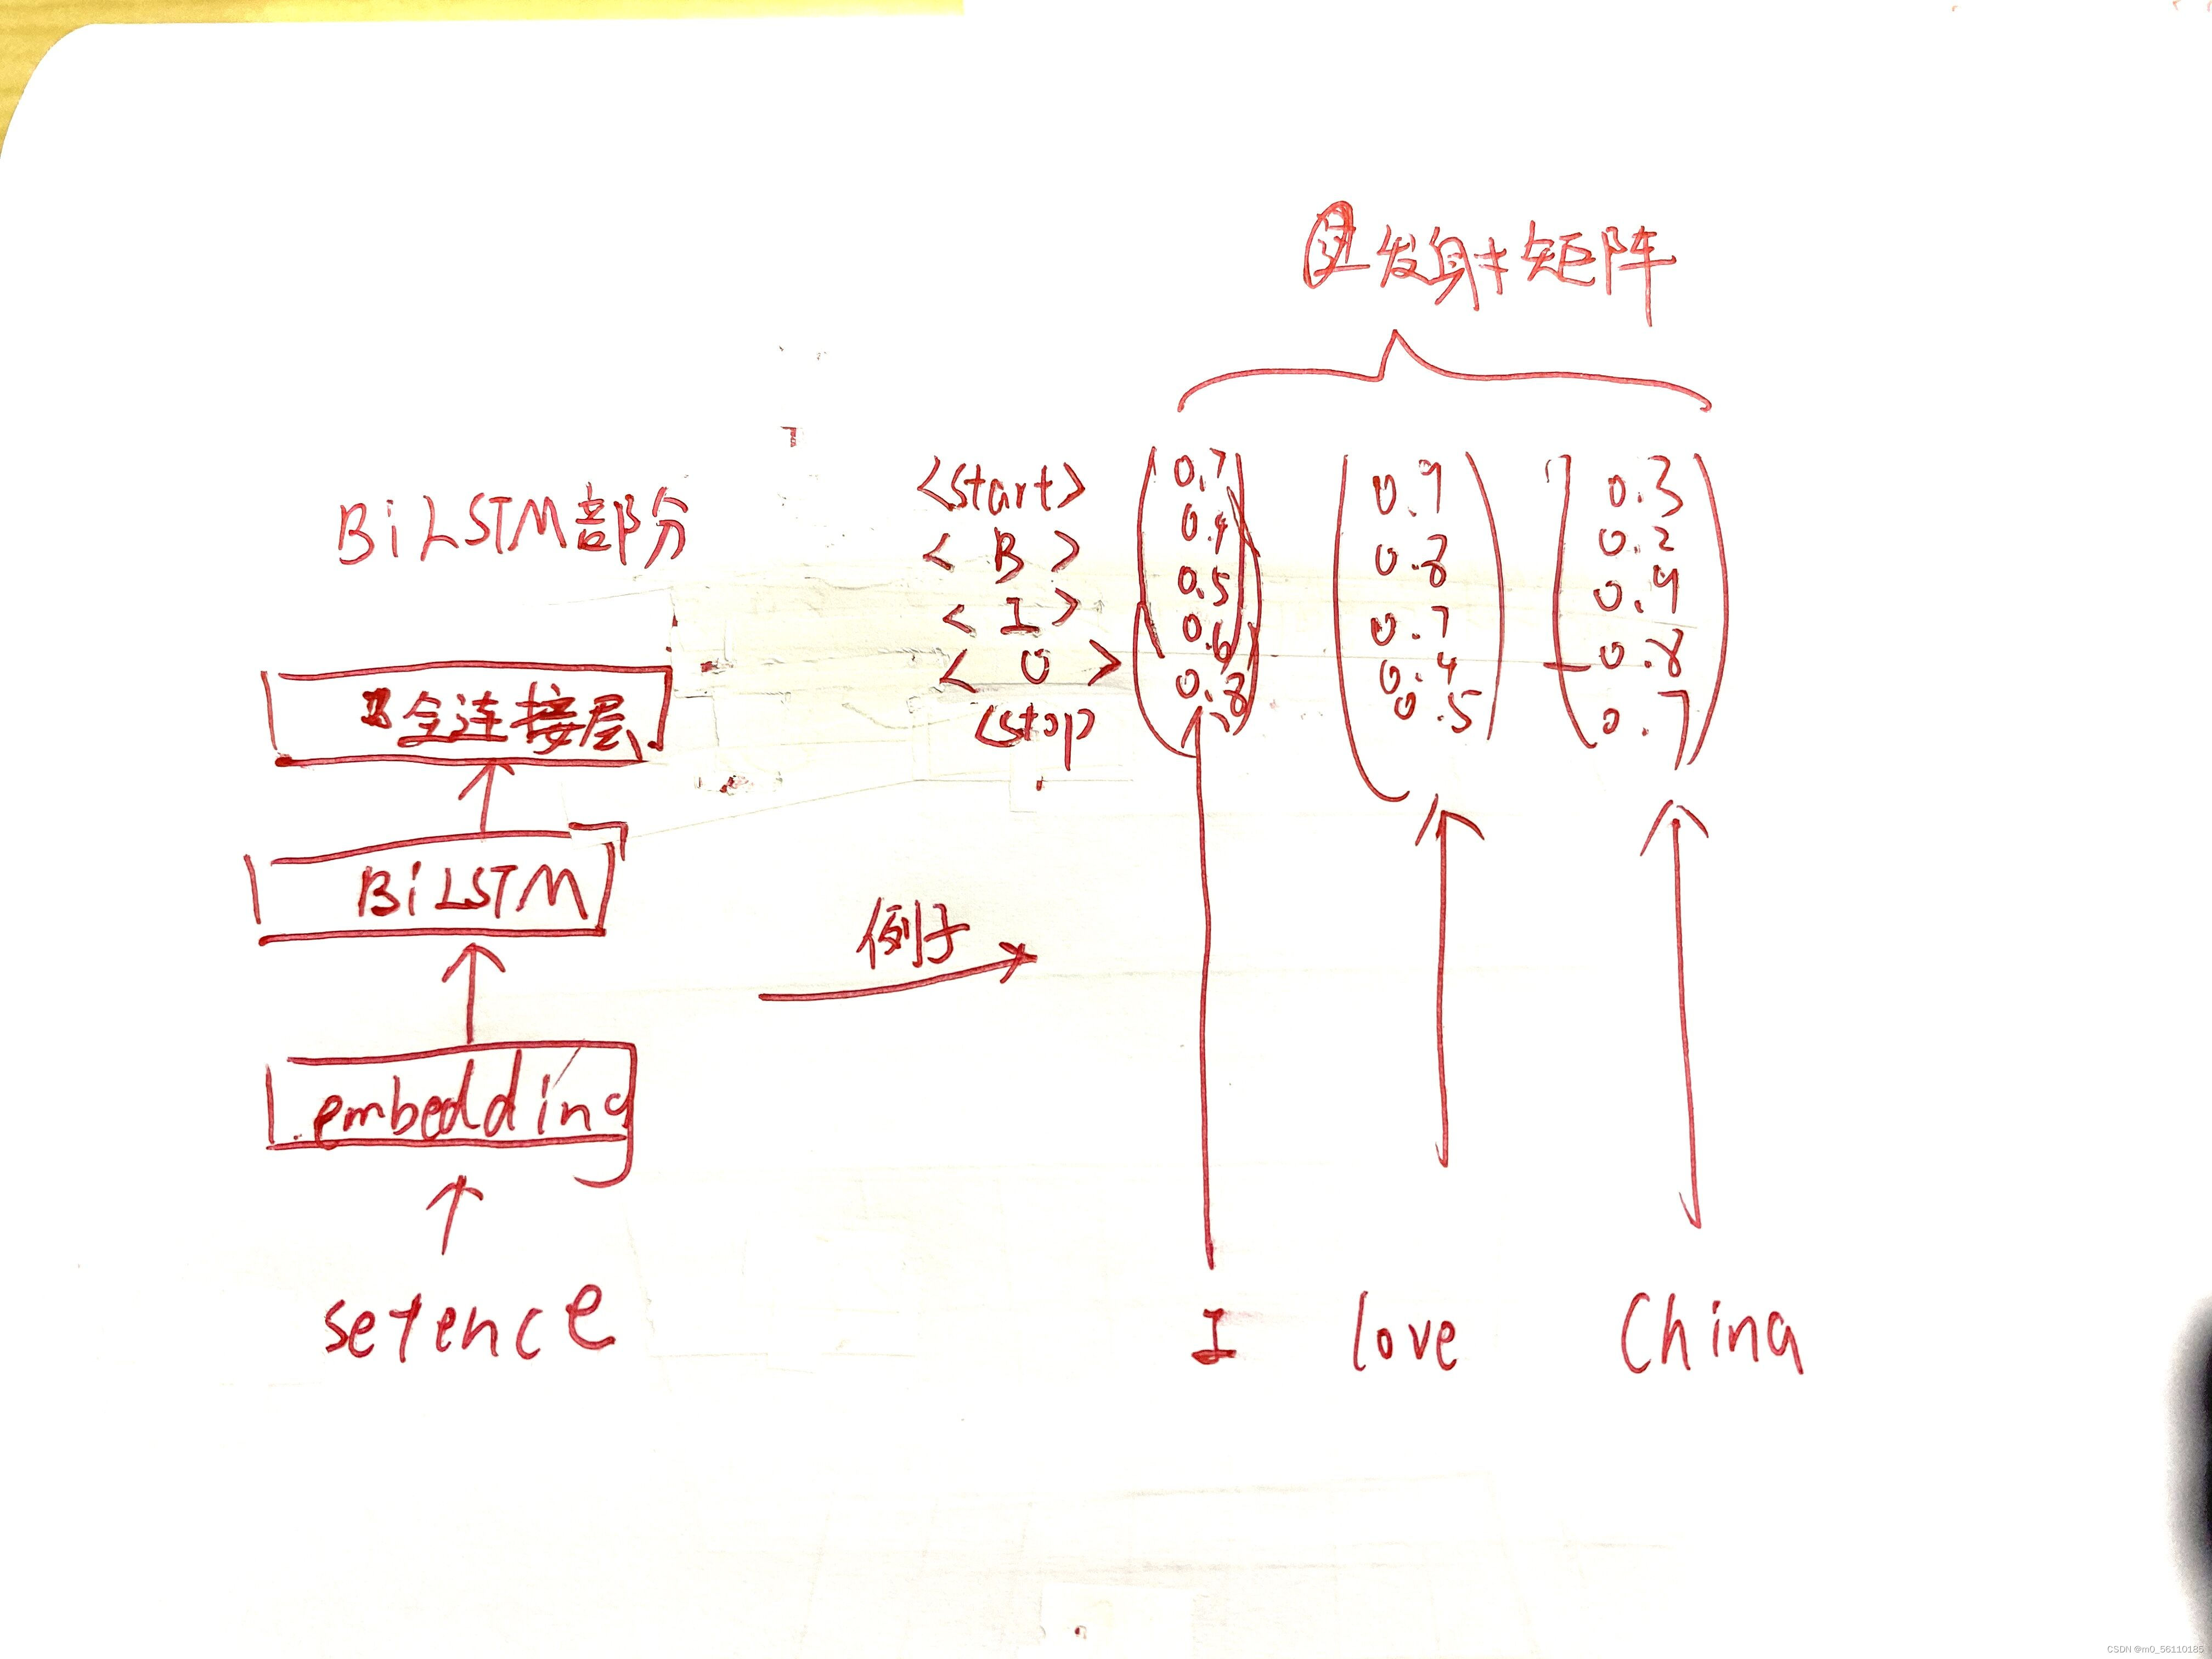 发射矩阵
BiLSTM部分
<start>
< B >
< I >
< O >
<stop
0.7
0.4
0.5
0.6
0.8
0.9
0.8
0.7
0.4
0.5
0.3
0.2
0.9
0.8
0.7
全连接层
BiLSTM
embedding
setence
例子
I love China
CSDN @m0_56110185